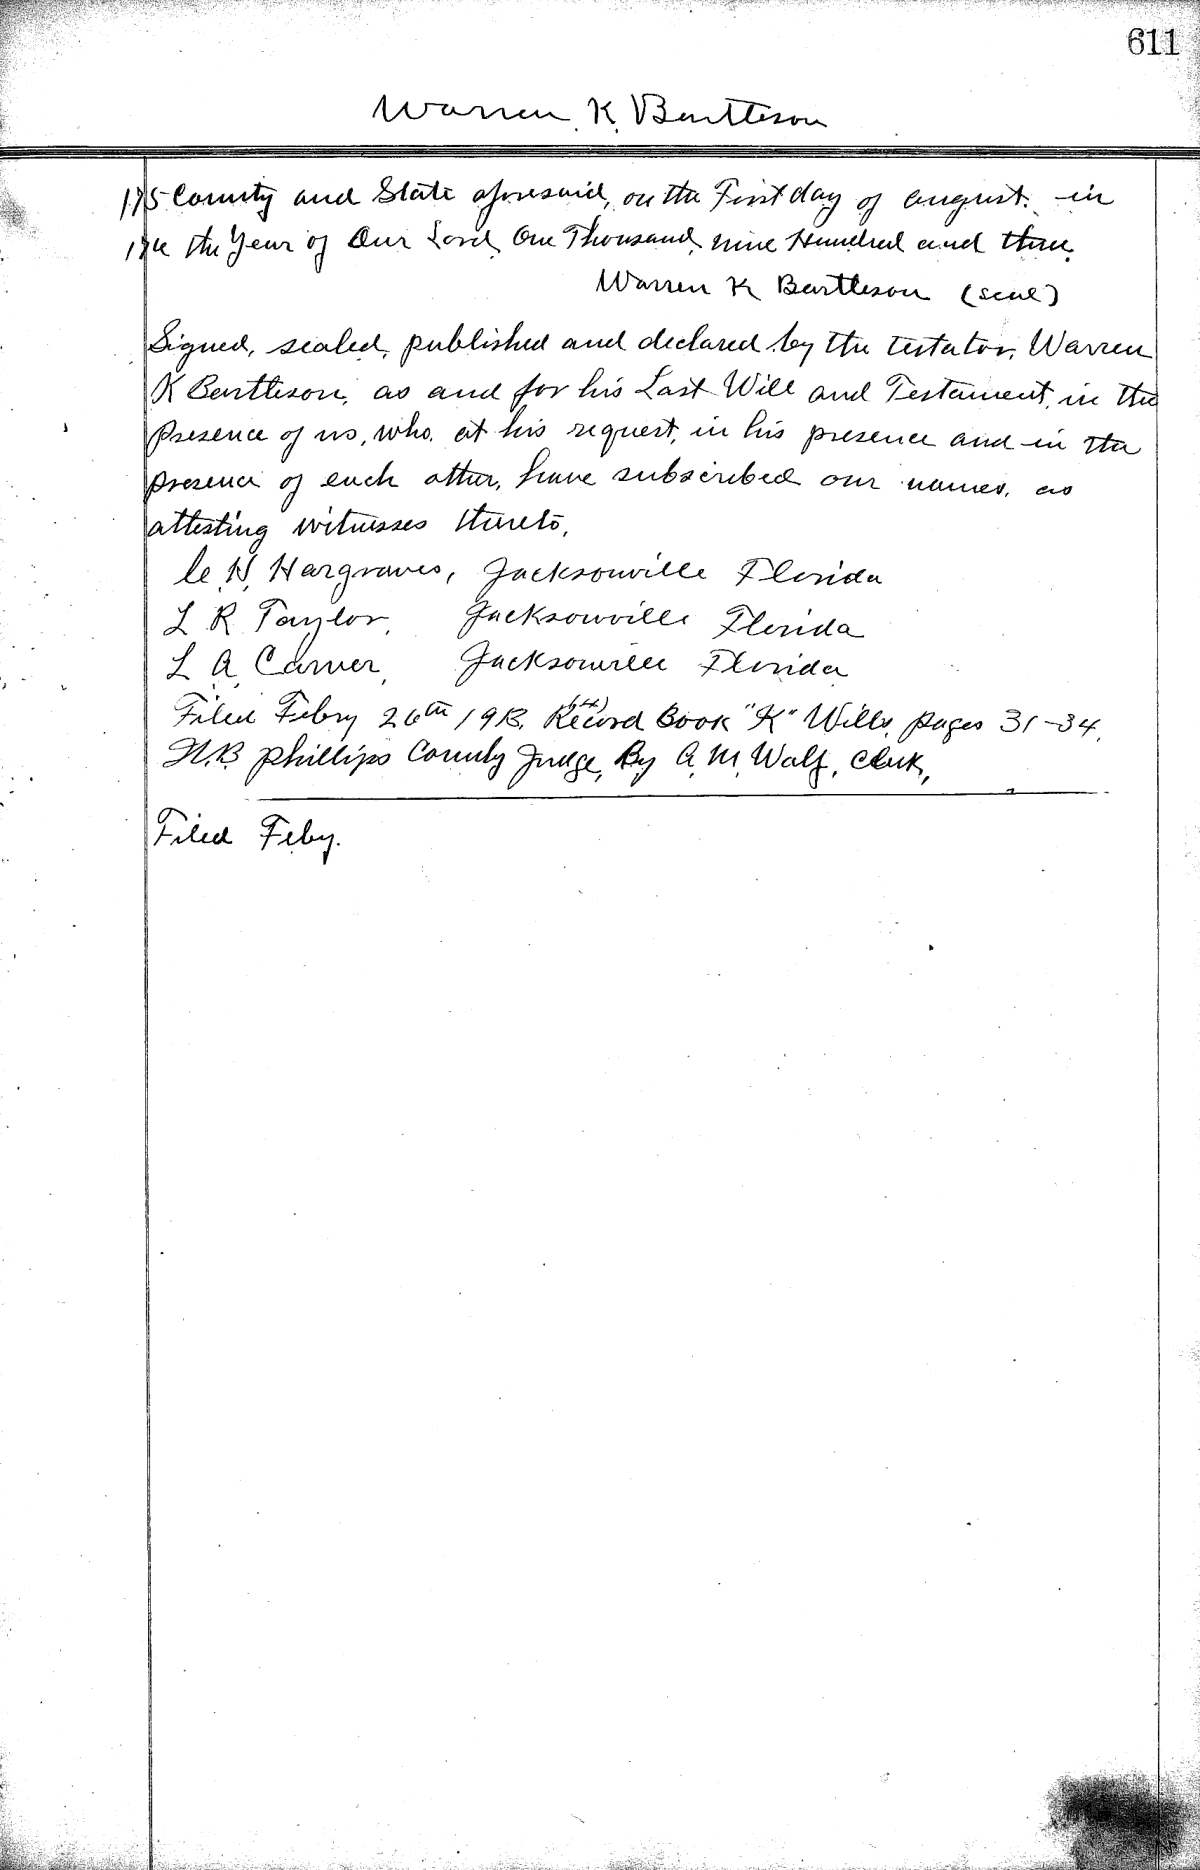 611
Warren K Bartleson
175 County and State aforesaid, on the First day of august. in
176 the Year of Our Lord, One Thousand, nine Hundred and three.
Warren K Bartleson (seal)
Signed, sealed, published and declared by the testator, Warren
K Bartleson, as and for his Last Will and Testament, in the
presence of us, who, at his request, in his presence and in the
presence of each other, have subscribed our names, as
attesting witnesses thereto,
C H Hargraves, Jacksonville Florida
L R Taylor, Jacksonville Florida
L A Carver, Jacksonville Florida
Filed Febry 26th 1913, Record Book "K" Wills, pages 31-34.
H.B Phillips County Judge, By A. M. Walf, Clerk,
Filed Feby.